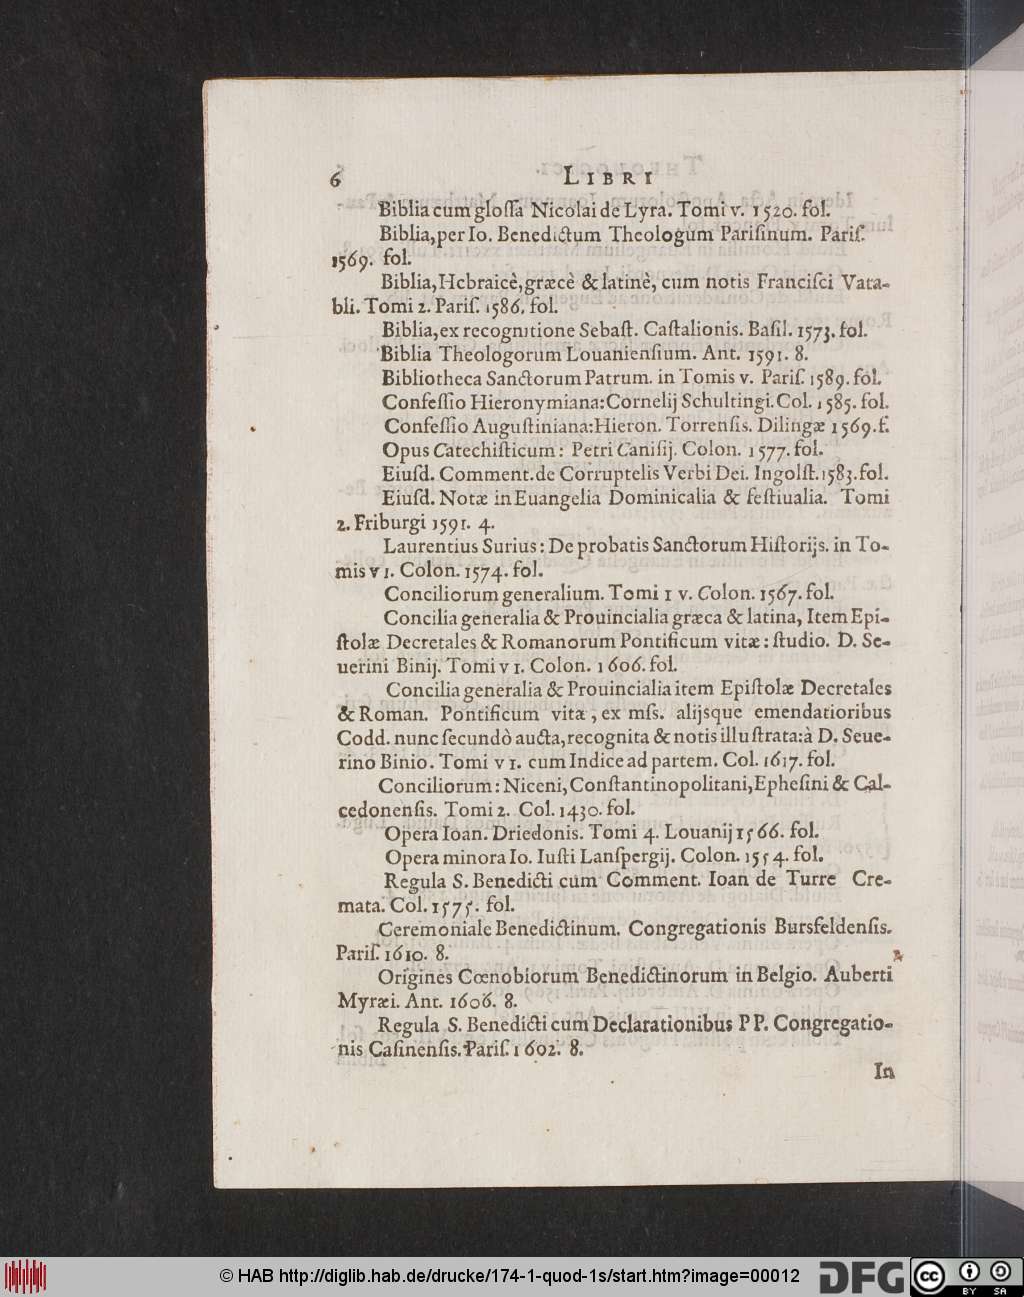 6 LIBRI
Biblia cum glossa Nicolai de Lyra. Tomi v. 1520. fol.
Biblia, per Io. Benedictum Theologum Parisinum. Paris.
1569. fol.
Biblia, Hebraicè, græcè & latinè, cum notis Francisci Vata-
bli. Tomi 2. Paris. 1586. fol.
Biblia, ex recognitione Sebast. Castalionis. Basil. 1573. fol.
Biblia Theologorum Louaniensium. Ant. 1591. 8.
Bibliotheca Sanctorum Patrum. in Tomis v. Paris. 1589. fol.
Confessio Hieronymiana: Cornelij Schultingi. Col. 1585. fol.
Confessio Augustiniana: Hieron. Torrensis. Dilingæ 1569. f.
Opus Catechisticum: Petri Canisij. Colon. 1577. fol.
Eiusd. Comment. de Corruptelis Verbi Dei. Ingolst. 1583. fol.
Eiusd. Notæ in Euangelia Dominicalia & festiualia. Tomi
2. Friburgi 1591. 4.
Laurentius Surius: De probatis Sanctorum Historijs. in To-
mis VI. Colon. 1574. fol.
Conciliorum generalium. Tomi IV. Colon. 1567. fol.
Concilia generalia & Prouincialia græca & latina, Item Epi-
stolæ Decretales & Romanorum Pontificum vitæ: studio. D. Se-
uerini Binij. Tomi VI. Colon. 1606. fol.
Concilia generalia & Prouincialia item Epistolæ Decretales
& Roman. Pontificum vitæ, ex mss. alijsque emendatioribus
Codd. nunc secundò aucta, recognita & notis illustrata: à D. Seue-
rino Binio. Tomi VI. cum Indice ad partem. Col. 1617. fol.
Conciliorum: Niceni, Constantinopolitani, Ephesini & Cal-
cedonensis. Tomi 2. Col. 1430. fol.
Opera Ioan. Driedonis. Tomi 4. Louanij 1566. fol.
Opera minora Io. Iusti Lanspergij. Colon. 1554. fol.
Regula S. Benedicti cum Comment. Ioan de Turre Cre-
mata. Col. 1575. fol.
Ceremoniale Benedictinum. Congregationis Bursfeldensis.
Paris. 1610. 8.
Origines Cœnobiorum Benedictinorum in Belgio. Auberti
Myræi. Ant. 1606. 8.
Regula S. Benedicti cum Declarationibus PP. Congregatio-
nis Casinensis. Paris. 1602. 8.
In
© HAB http://diglib.hab.de/drucke/174-1-quod-1s/start.htm?image=00012 DFG CC BY SA